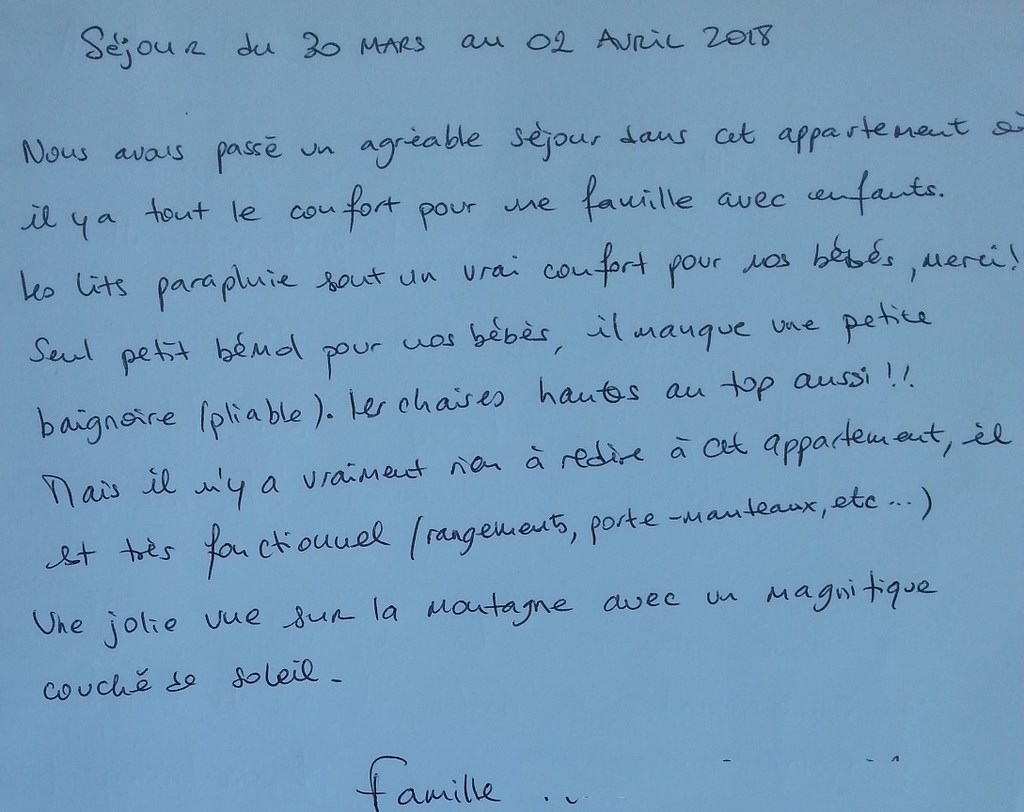 Séjour du 30 MARS au 02 AVRIL 2018
Nous avons passé un agréable séjour dans cet appartement où
il y a tout le confort pour une famille avec enfants.
Les lits parapluie sont un vrai confort pour nos bébés, merci!
Seul petit bémol pour nos bébés, il manque une petite
baignoire (pliable). Les chaises hautes au top aussi !!
Mais il n'y a vraiment rien à redire à cet appartement, il
est très fonctionnel (rangements, porte-manteaux, etc...)
Une jolie vue sur la montagne avec un magnifique
couché de soleil.
Famille